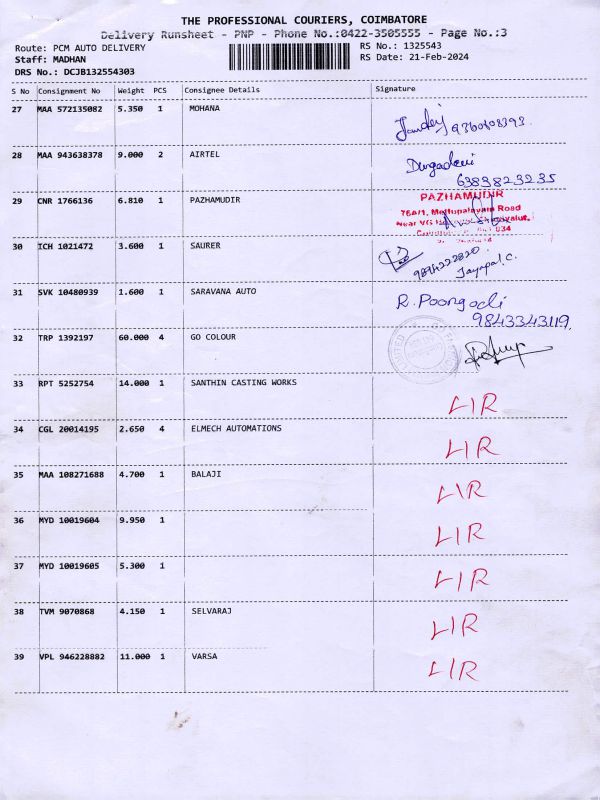 THE PROFESSIONAL COURIERS, COIMBATORE
Delivery Runsheet - PNP - Phone No.:0422-3505555 - Page No.:3
Route: PCM AUTO DELIVERY
RS No.: 1325543
Staff: MADHAN
RS Date: 21-Feb-2024
DRS No.: DCJB132554303
S No Consignment No Weight PCS Consignee Details Signature
27 MAA 572135082 5.350 1 MOHANA
9360808393
28 MAA 943638378 9.000 2 AIRTEL
Durgadevi
6383823235
29 CNR 1766136 6.810 1 PAZHAMUDIR
PAZHAMUDIR
Road
30 ICH 1021472 3.600 1 SAURER
9894222820
Jayapal.C.
31 SVK 10480939 1.600 1 SARAVANA AUTO
R. Poongodi
9843343119
32 TRP 1392197 60.000 4 GO COLOUR
33 RPT 5252754 14.000 1 SANTHIN CASTING WORKS
LIR
34 CGL 20014195 2.650 4 ELMECH AUTOMATIONS
LIR
35 MAA 108271688 4.700 1 BALAJI
LIR
36 MYD 10019604 9.950 1
LIR
37 MYD 10019605 5.300 1
LIR
38 TVM 9070868 4.150 1 SELVARAJ
LIR
39 VPL 946228882 11.000 1 VARSA
LIR